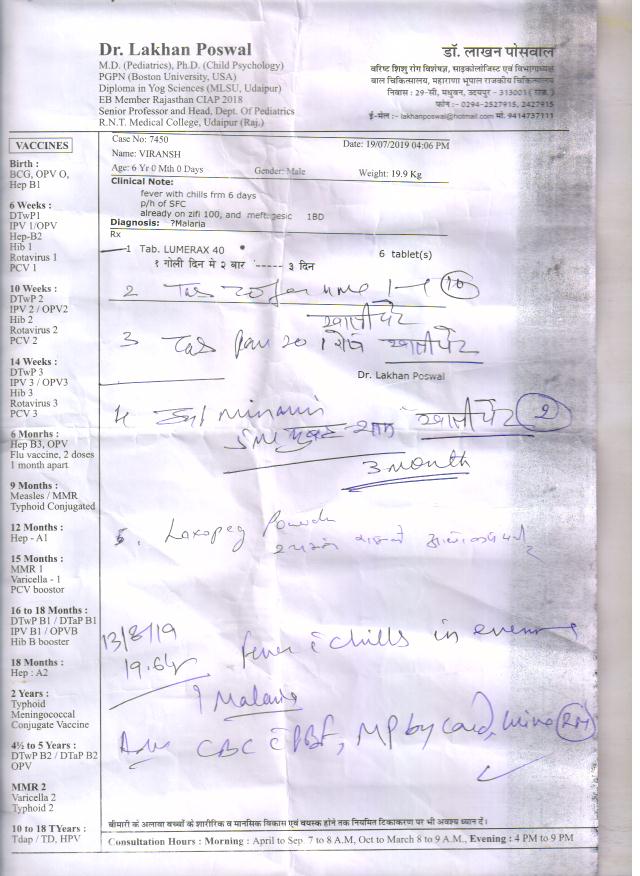 Dr. Lakhan Poswal
M.D. (Pediatrics), Ph.D. (Child Psychology)
PGPN (Boston University, USA)
Diploma in Yog Sciences (MLSU, Udaipur)
EB Member Rajasthan CIAP 2018
Senior Professor and Head, Dept. Of Pediatrics
R.N.T. Medical College, Udaipur (Raj.)
डॉ. लाखन पोसवाल
वरिष्ट शिशु रोग विशेषज्ञ, साइकोलोजिस्ट एवं विभागाध्यक्ष
बाल चिकित्सालय, महाराणा भूपाल राजकीय चिकित्सालय
निवास : 29-सी, मधुबन, उदयपुर - 313001 (राज.)
फोन :- 0294-2527915, 2427915
ई-मेल :- lakhanposwal@hotmail.com मो. 9414737111
VACCINES
Birth :
BCG, OPV O,
Hep B1
6 Weeks :
DTwP1
IPV 1/OPV
Hep-B2
Hib 1
Rotavirus 1
PCV 1
10 Weeks :
DTwP 2
IPV 2 / OPV2
Hib 2
Rotavirus 2
PCV 2
14 Weeks :
DTwP 3
IPV 3 / OPV3
Hib 3
Rotavirus 3
PCV 3
6 Monrhs :
Hep B3, OPV
Flu vaccine, 2 doses
1 month apart
9 Months :
Measles / MMR
Typhoid Conjugated
12 Months :
Hep - A1
15 Months :
MMR 1
Varicella - 1
PCV boostor
16 to 18 Months :
DTwP B1 / DTaP B1
IPV B1 / OPVB
Hib B booster
18 Months :
Hep : A2
2 Years :
Typhoid
Meningococcal
Conjugate Vaccine
4½ to 5 Years :
DTwP B2 / DTaP B2
OPV
MMR 2
Varicella 2
Typhoid 2
10 to 18 TYears :
Tdap / TD, HPV
Case No: 7450
Date: 19/07/2019 04:06 PM
Name: VIRANSH
Age: 6 Yr 0 Mth 0 Days Gender: Male Weight: 19.9 Kg
Clinical Note:
fever with chills frm 6 days
p/h of SFC
already on zifi 100, and meftagesic 1BD
Diagnosis: ?Malaria
Rx
1 Tab. LUMERAX 40 6 tablet(s)
१ गोली दिन मे २ बार ----- ३ दिन
2 Tab 1-1 10
खालीपेट
3 Tab Pan 20 1 रोज खालीपेट
Dr. Lakhan Poswal
4 5ml सुबह-शाम खालीपेट 2
3 month
5. Laxopeg Powder
13/8/19
19.6 fever c̄ chills in evening
? Malaria
Adv CBC c̄ PBF, MP by Card, Urine R/M
बीमारी के अलावा बच्चों के शारीरिक व मानसिक विकास एवं वयस्क होने तक नियमित टिकाकरण पर भी अवश्य ध्यान दें।
Consultation Hours : Morning : April to Sep. 7 to 8 A.M, Oct to March 8 to 9 A.M., Evening : 4 PM to 9 PM